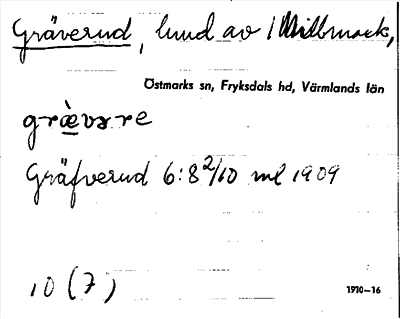 Gräverud, lund av 1 Millmark,
Östmarks sn, Fryksdals hd, Värmlands län
grævəre
Gräfverud 6:8 2/10 ml 1909
10 (7)
1910–16